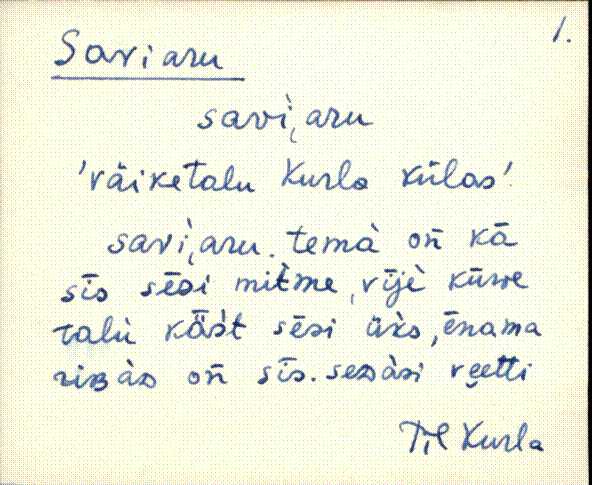 1.
Saviaru
savì,aru
'väiketalu Kurla külas'.
savì,aru. temà on̄ kā
sīs sēsi mitme, vījè kūwe
talù kǟst sēsi ük̀s, ēnama
on̄ sīs. seuàsi reetti
Trl Kurla